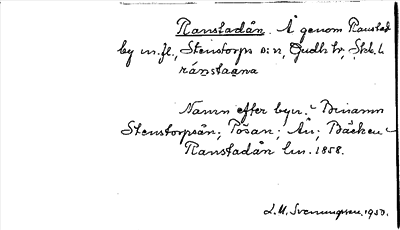 Ranstadån. Å genom Ranstad
by m.fl., Stenstorps s:n, Gudh. hr, Skb. l.
ránstaana
Namn efter byn. Binamn
Stenstorpsån; Pösan; Ån; Bäcken
Ranstadån lm. 1858.
L.M. Svenungsson. 1930.